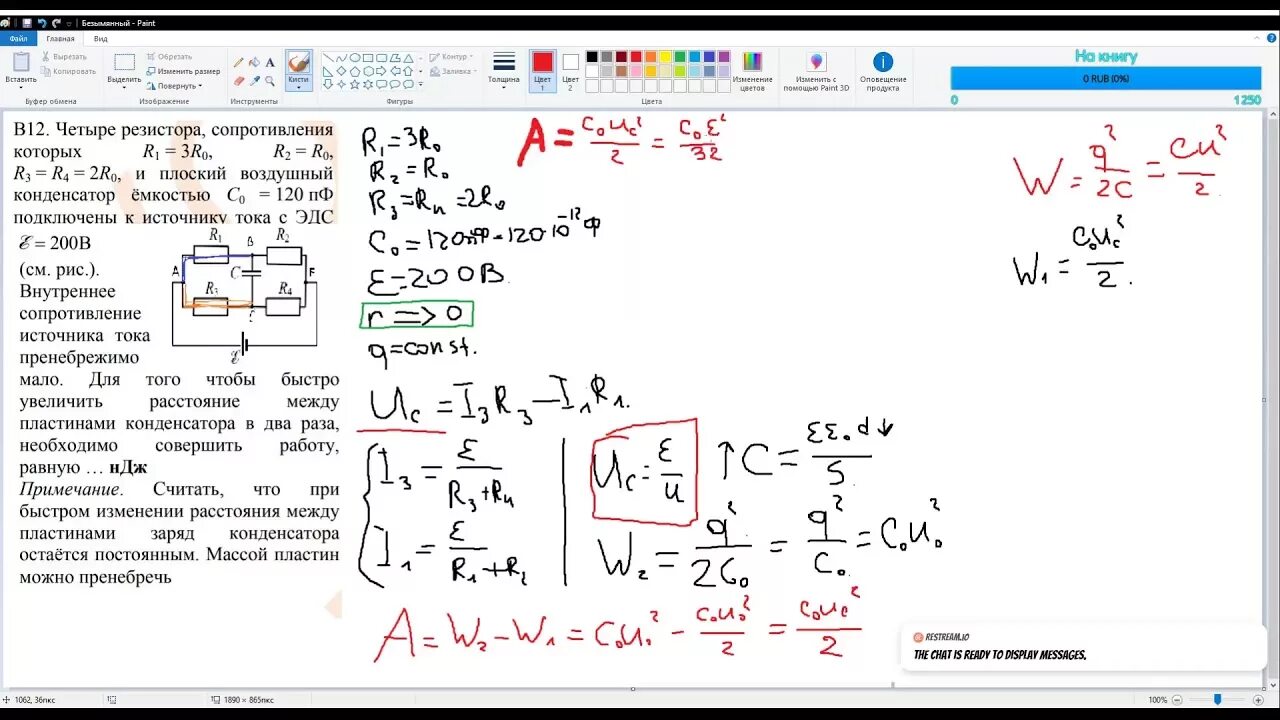 Безымянный - Paint
Файл
Главная
Вид
Вставить
Вырезать
Копировать
Буфер обмена
Выделить
Обрезать
Изменить размер
Повернуть
Изображение
Инструменты
Кисти
Контур
Заливка
Фигуры
Толщина
Цвет 1
Цвет 2
Цвета
Изменение цветов
Изменить с помощью Paint 3D
Оповещение продукта
На книгу
0 RUB (0%)
0
1250
B12. Четыре резистора, сопротивления
которых R₁ = 3R₀, R₂ = R₀,
R₃ = R₄ = 2R₀, и плоский воздушный
конденсатор ёмкостью C₀ = 120 пФ
подключены к источнику тока с ЭДС
ℰ = 200В
(см. рис.).
Внутреннее
сопротивление
источника тока
пренебрежимо
мало. Для того чтобы быстро
увеличить расстояние между
пластинами конденсатора в два раза,
необходимо совершить работу,
равную … нДж
Примечание. Считать, что при
быстром изменении расстояния между
пластинами заряд конденсатора
остаётся постоянным. Массой пластин
можно пренебречь
R₁
B
R₂
A
C
F
R₃
R₄
ℰ
R₁=3R₀
R₂=R₀
R₃=Rч=2R₀
C₀=120пФ=120·10⁻¹²Ф
ε=200В
r=>0
q=const.
Uc=I₃R₃-I₁R₁.
I₃=ε/(R₃+Rч)
I₁=ε/(R₁+R₂)
Uc=ε/ч
↑C=εε₀d↓/S
W₂=q²/2C₀=q²/C₀=C₀U₀²
A=W₂-W₁=C₀U₀²-C₀U₀²/2=C₀Uc²/2
A=C₀Uc²/2=C₀ε²/32
W=q²/2C=CU²/2
W₁=C₀Uc²/2.
RESTREAM.IO
THE CHAT IS READY TO DISPLAY MESSAGES.
1062, 36пкс
1890 × 865пкс
100%